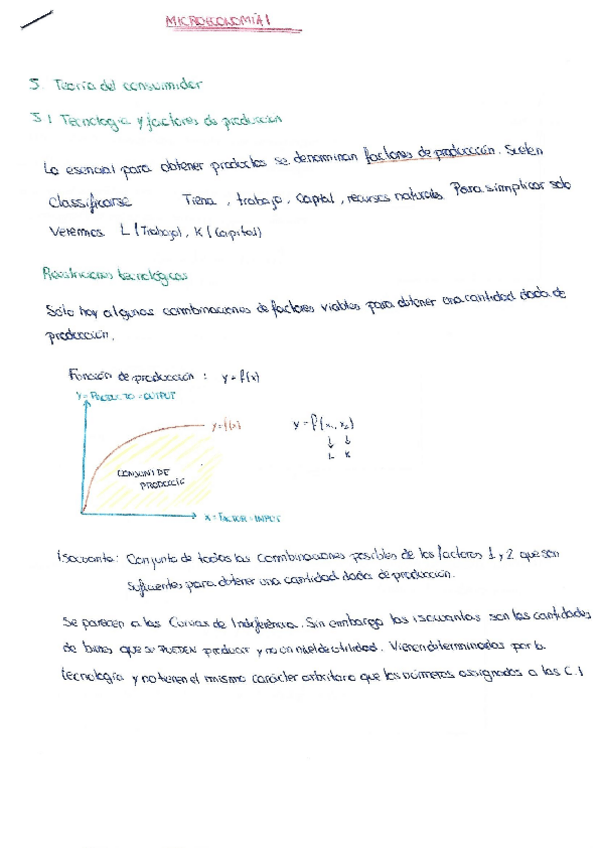 MICROECONOMÍA I
5. Teoría del consumidor
5.1 Tecnología y factores de producción
Lo esencial para obtener productos se denominan factores de producción. Suelen
classificarse Tierra, trabajo, capital, recursos naturales. Para simplicar solo
veremos L (Trabajo), K (Capital)
Restricciones tecnológicas
Sólo hay algunas combinaciones de factores viables para obtener una cantidad dada de
producción.
Función de producción : y = f(x)
y = PRODUCTO = OUTPUT
y = f(x)
y = f(x₁, x₂)
↓ ↓
L K
CONJUNT DE
PRODUCCIÓ
x = FACTOR = INPUT
Isocuanta: Conjunto de todas las combinaciones posibles de los factores 1 y 2 que son
suficientes para obtener una cantidad dada de producción.
Se parecen a las Curvas de Indiferencia. Sin embargo las isocuantas son las cantidades
de bienes que se PUEDEN producir y no un nivel de utilidad. Vienen determinadas por la
tecnología y no tienen el mismo carácter arbitrario que los números assignados a las C.I